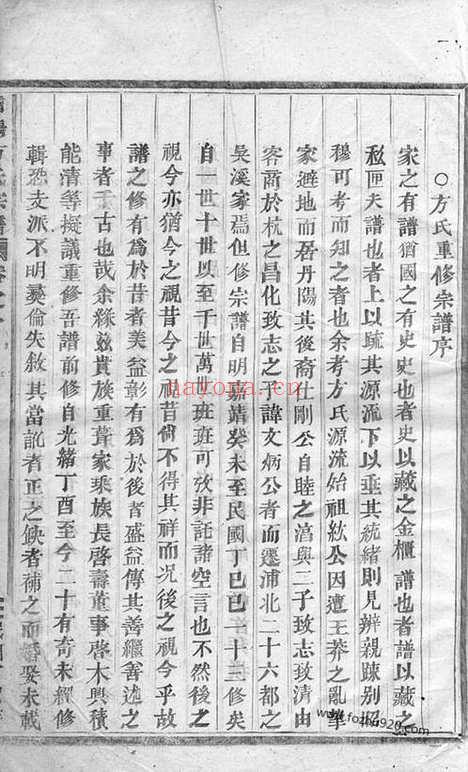 ○方氏重修宗譜序
家之有譜猶國之有史史也者史以藏之金櫃譜也者譜以藏之
私匣夫譜也者上以疏其源流下以垂其統緒則見辦親踈别昭
穆可考而知之者也余考方氏源流始祖紘公因遭王莽之亂举
家避地而居丹陽其後裔仕剛公自睦之滀與二子致志致清由
客商於杭之昌化致志之子諱文炳公者而遷浦北二十六都之
吳溪家焉但修宗譜自明嘉靖癸未至民國丁巳已一十三修矣
自一世十世以至千世萬世班班可攷非託諸空言也不然後之
視今亦猶今之視昔今之視昔尙不得其祥而况後之視今乎故
譜之修有爲於昔者美益彰有爲於後者盛益傳其善繼善述之
事者千古也哉余緣兹貴族重葺家乘族長啓壽董事啓木興積
能清等擬議重修吾譜前修自光緒丁酉至今二十有奇未經修
輯恐支派不明彛倫失敘其當訛者正之缺者補之而婚娶未載
方氏宗譜
hayona.cn
www.fozhu920.com